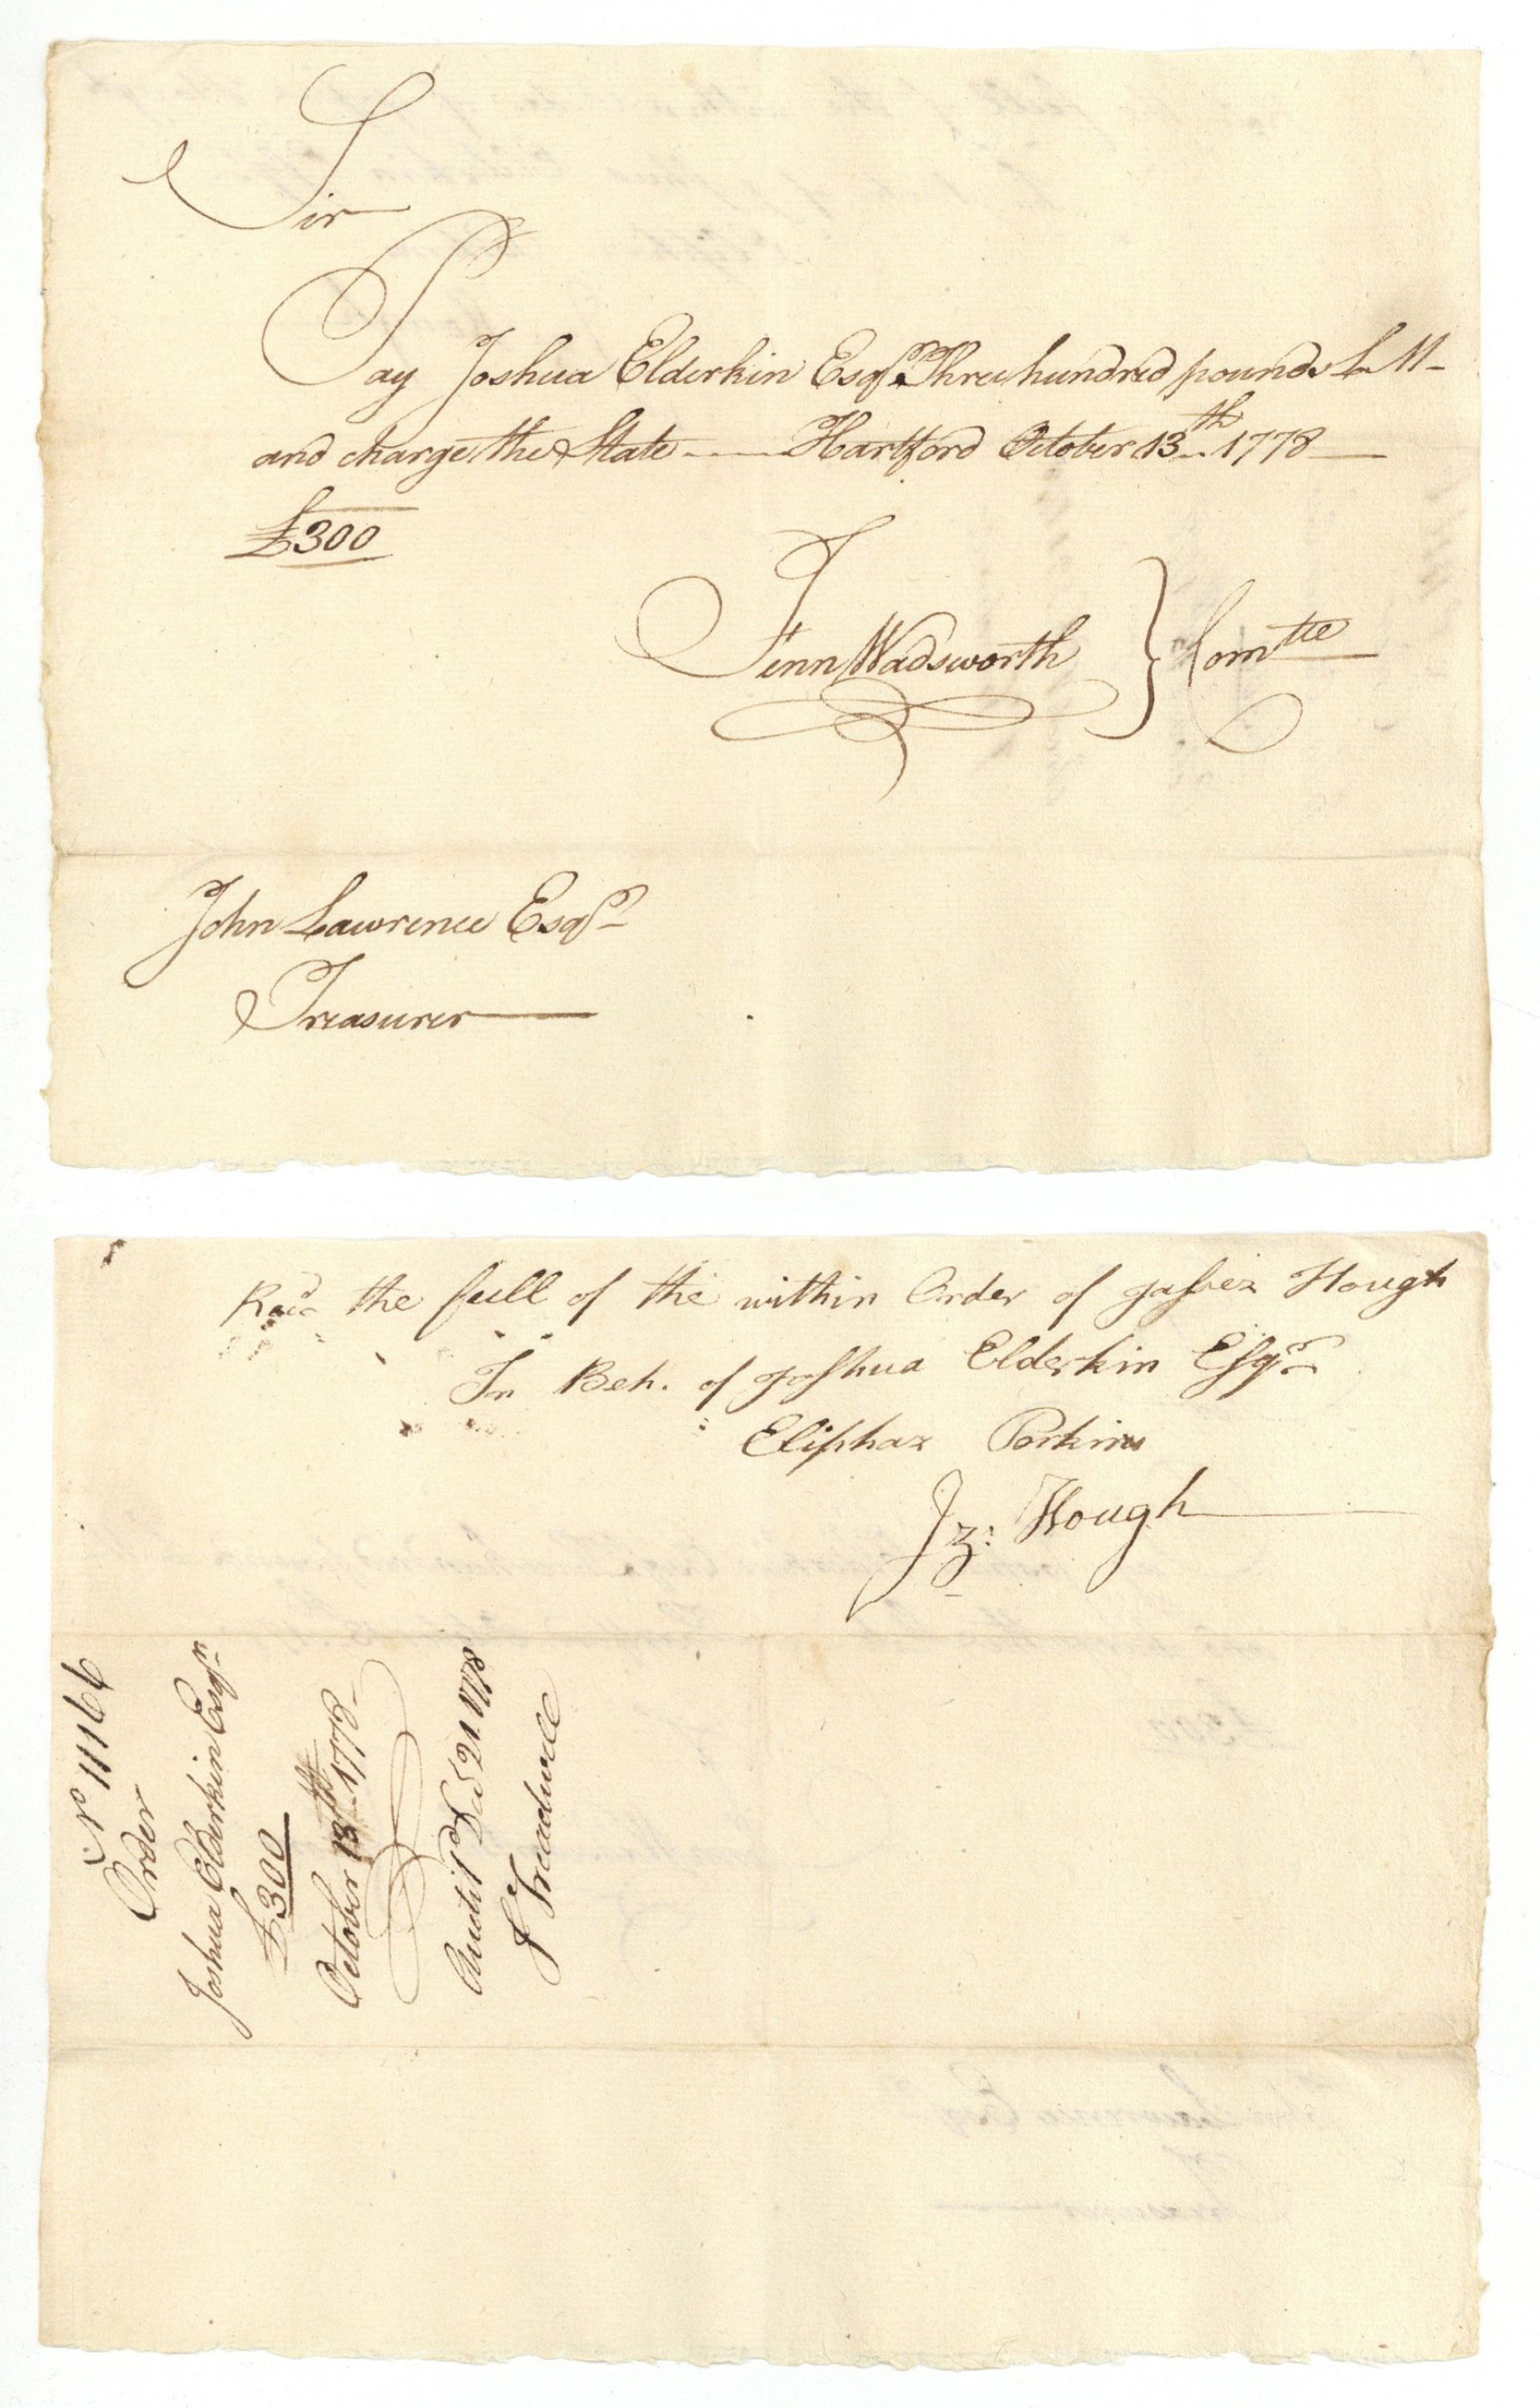 Sir
Pay Joshua Elderkin Esqr. Three hundred pounds L M-
and charge the State - Hartford October 13th 1778
£300
Fenn Wadsworth } Comtte
John Lawrence Esqr
Treasurer
Recd the full of the within Order of Jabez Hough
In Beh. of Joshua Elderkin Esqr
Eliphaz Perkins
Jz: Hough
No 11166
Order
Joshua Elderkin Esqr
£300
October 13th 1778
Auditd Decd 21. 1778
J Treadwell